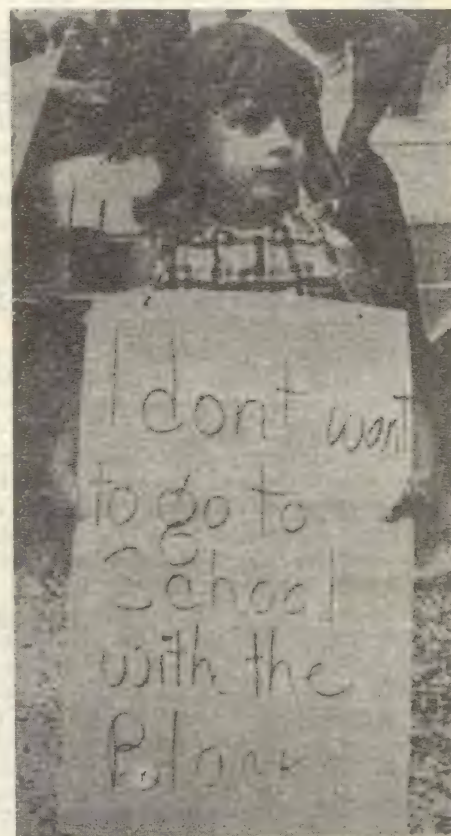 I dont want
to go to
School
with the